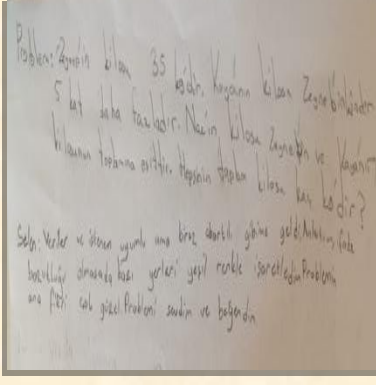 Problem: Zeynep'in kilosu 35 kg'dır. Kaya'nın kilosu Zeynep'inkinden
5 kat daha fazladır. Naz'ın kilosu Zeynep'in ve Kaya'nın
kilosunun toplamına eşittir. Hepsinin toplam kilosu kaç kg'dır?
Selin: Veriler ve istenen uyumlu ama biraz abartılı gibime geldi. Anlatım, ifade
bozukluğu olmasada bazı yerleri yeşil renkle işaretledim. Problemin
ana fikri çok güzel. Problemi sevdim ve beğendim